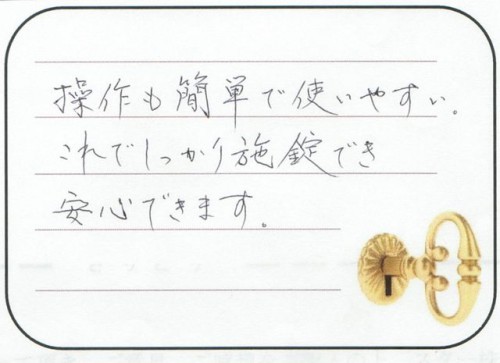 操作も簡単で使いやすい。
これでしっかり施錠でき
安心できます。